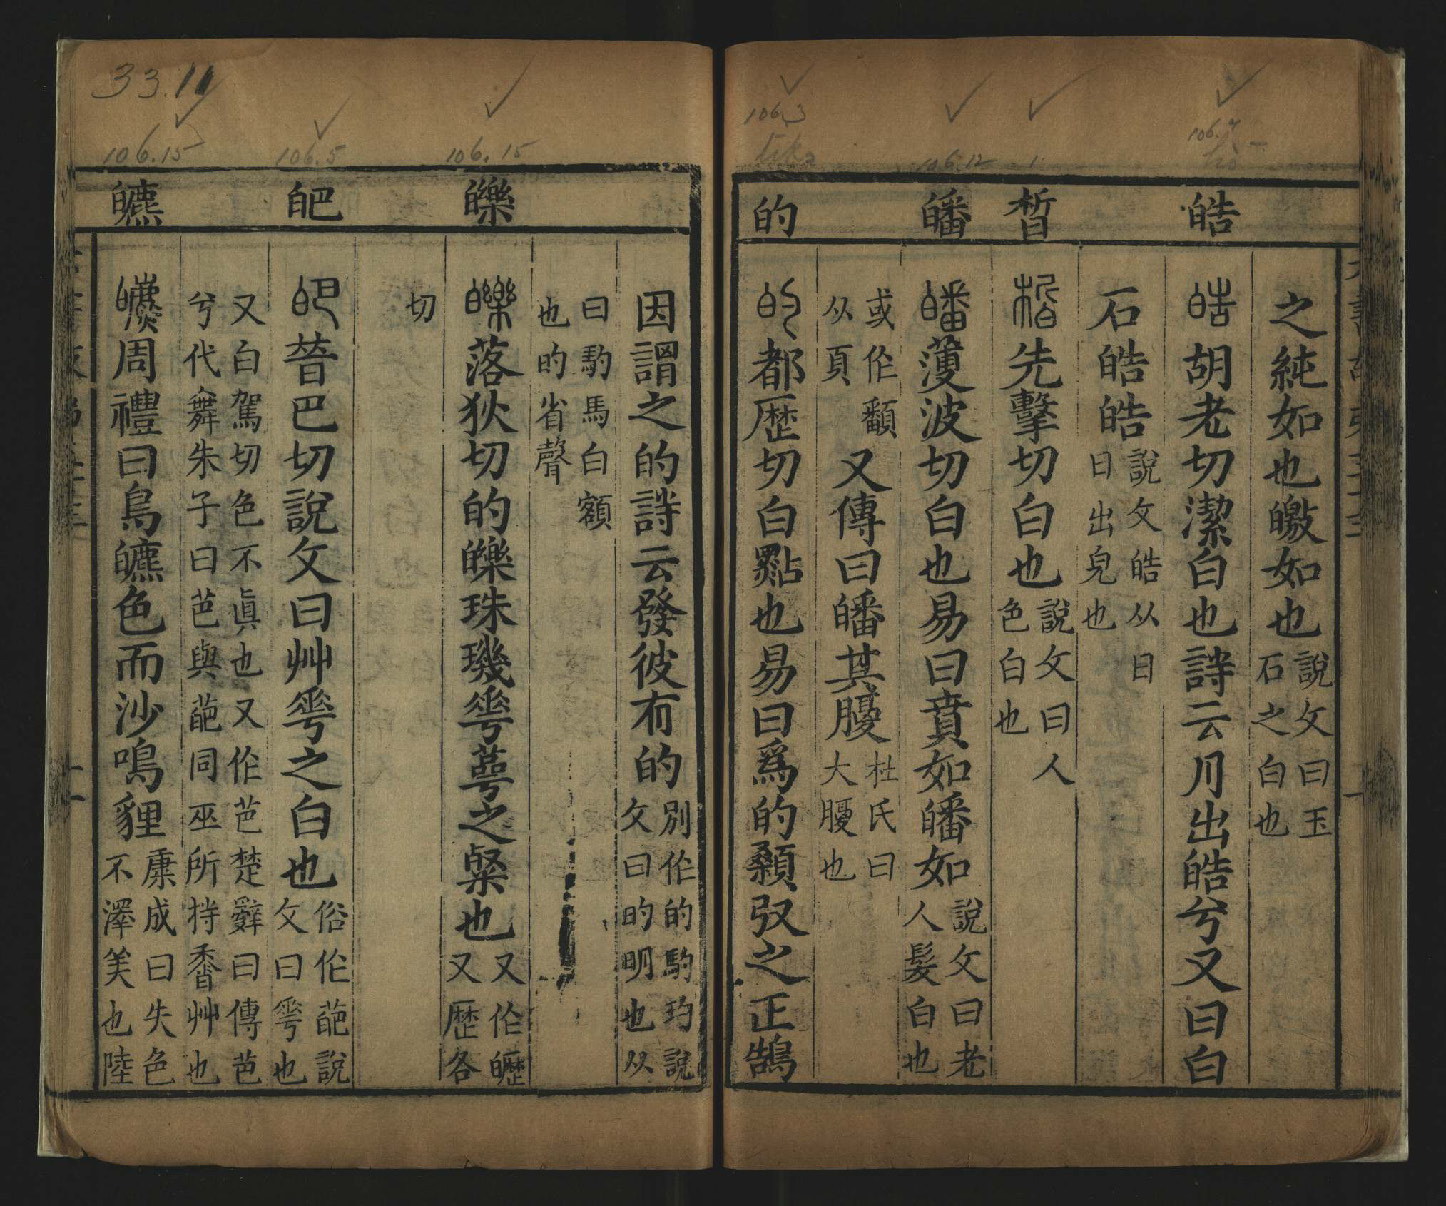 106.3
106.12
106.7
33.11
106.15
106.5
106.15
皓
晳
皤
的
之純如也皦如也說文曰玉
石之白也
皓胡老切潔白也詩云月出皓兮又曰白
石皓皓說文皓从日
日出皃也
晳先擊切白也說文曰人
色白也
皤薄波切白也易曰賁如皤如說文曰老
人髮白也
或作䪤
从頁
又傳曰皤其腹杜氏曰
大腹也
的都歷切白㸃也易曰爲的顙馭之正鵠
皪
皅
皫
因謂之的詩云發彼有的別作的馰玓說
文曰旳明也从
曰馰馬白額
也旳省聲
皪落狄切的皪珠璣𠌶萼之粲也又作㿨
又歷各
切
皅普巴切說文曰艸𠌶之白也俗作葩說
文曰𠌶也
又白駕切色不眞也又作芭楚辭曰傳芭
兮代舞朱子曰芭與葩同巫所持香艸也
皫周禮曰鳥皫色而沙鳴貍康成曰失色
不澤美也陸